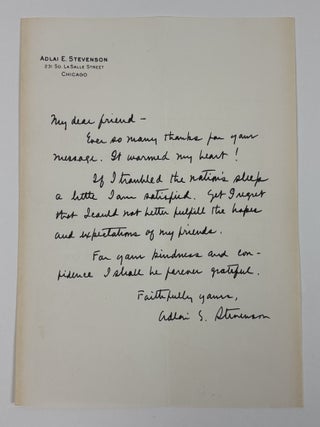 ADLAI E. STEVENSON
231 SO. LA SALLE STREET
CHICAGO
My dear friend –
Ever so many thanks for your
message. It warmed my heart!
If I troubled the nation's sleep
a little I am satisfied. Yet I regret
that I could not better fulfill the hopes
and expectations of my friends.
For your kindness and con-
fidence I shall be forever grateful.
Faithfully yours,
Adlai E. Stevenson